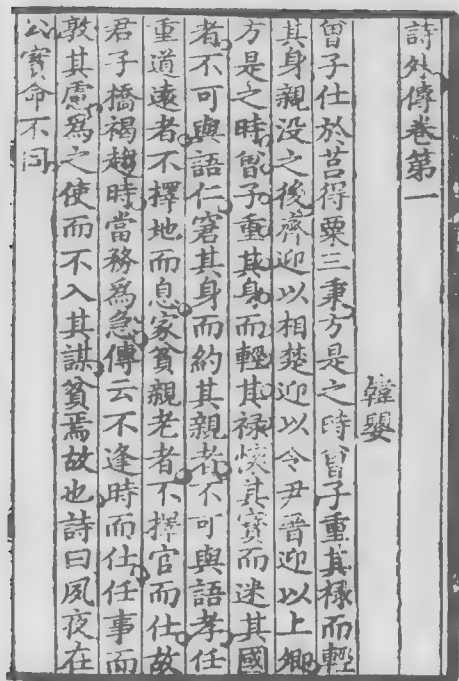 詩外傳卷第一
韓嬰
曾子仕於莒得粟三秉方是之時曾子重其祿而輕
其身親没之後齊迎以相楚迎以令尹晋迎以上卿
方是之時曾子重其身而輕其禄懐其寳而迷其國
者不可與語仁窘其身而約其親者不可與語孝任
重道逺者不擇地而息家貧親老者不擇官而仕故
君子橋褐趨時當務為急傳云不逢時而仕任事而
敦其慮為之使而不入其謀貧焉故也詩曰夙夜在
公寔命不同